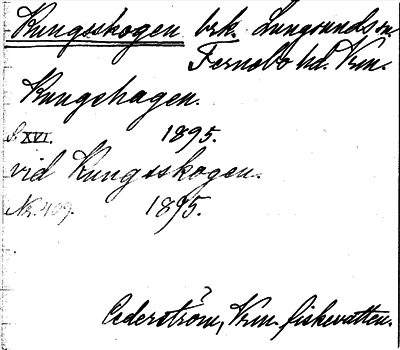 Kungsskogen brk. Lungsunds sn
Fernebo hd. Vrm.
Kungshagen.
S. XVI. 1895.
vid Kungsskogen.
Nr. 409. 1895.
Cederström, Vrm. fiskevatten.